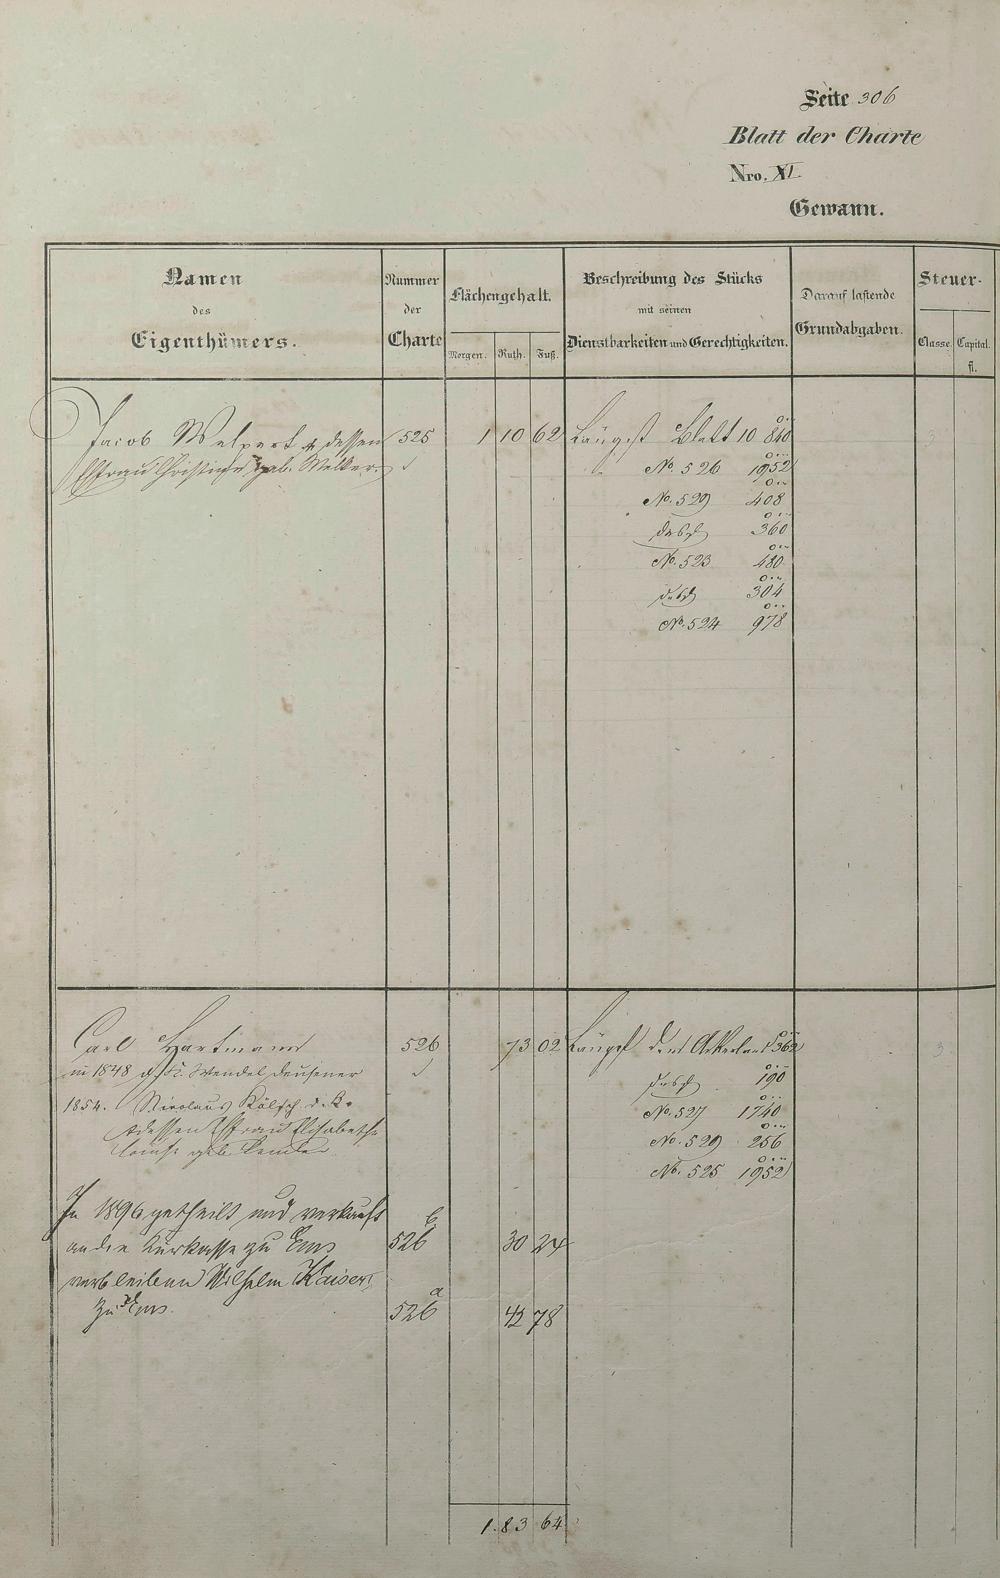 Seite 306
Blatt der Charte
Nro. XI.
Gewann.
Namen
des
Eigenthümers.
Nummer
der
Charte
Flächengehalt.
Morgen. Ruth. Fuß.
Beschreibung des Stücks
mit seinen
Dienstbarkeiten und Gerechtigkeiten.
Darauf lastende
Grundabgaben.
Steuer-
Classe. Capital.
fl.
Jacob Welpert & dessen 525 1 10 62 Längst Blatt 10 840
Ehefrau Christine geb. Welker No. 526 1952
No. 529 408
dasselbe 360
No. 523 480
dasselbe 304
No. 524 978
3
Carl Hartmann 526 73 02 Längst dem Ackerland 362
3
in 1848 Wendel Deusener
dasselbe 190
1854. Nicolaus Kölsch d. K.
No. 527 1740
& dessen Ehefrau Elisabethe
No. 529 256
Louise geb.
No. 525 1952
In 1896 getheilt und verkauft
an die Kurkasse zu Ems 526 b 30 24
verbleiben Wilhelm Kaiser
zu Ems. 526 a 42 78
1. 83 64